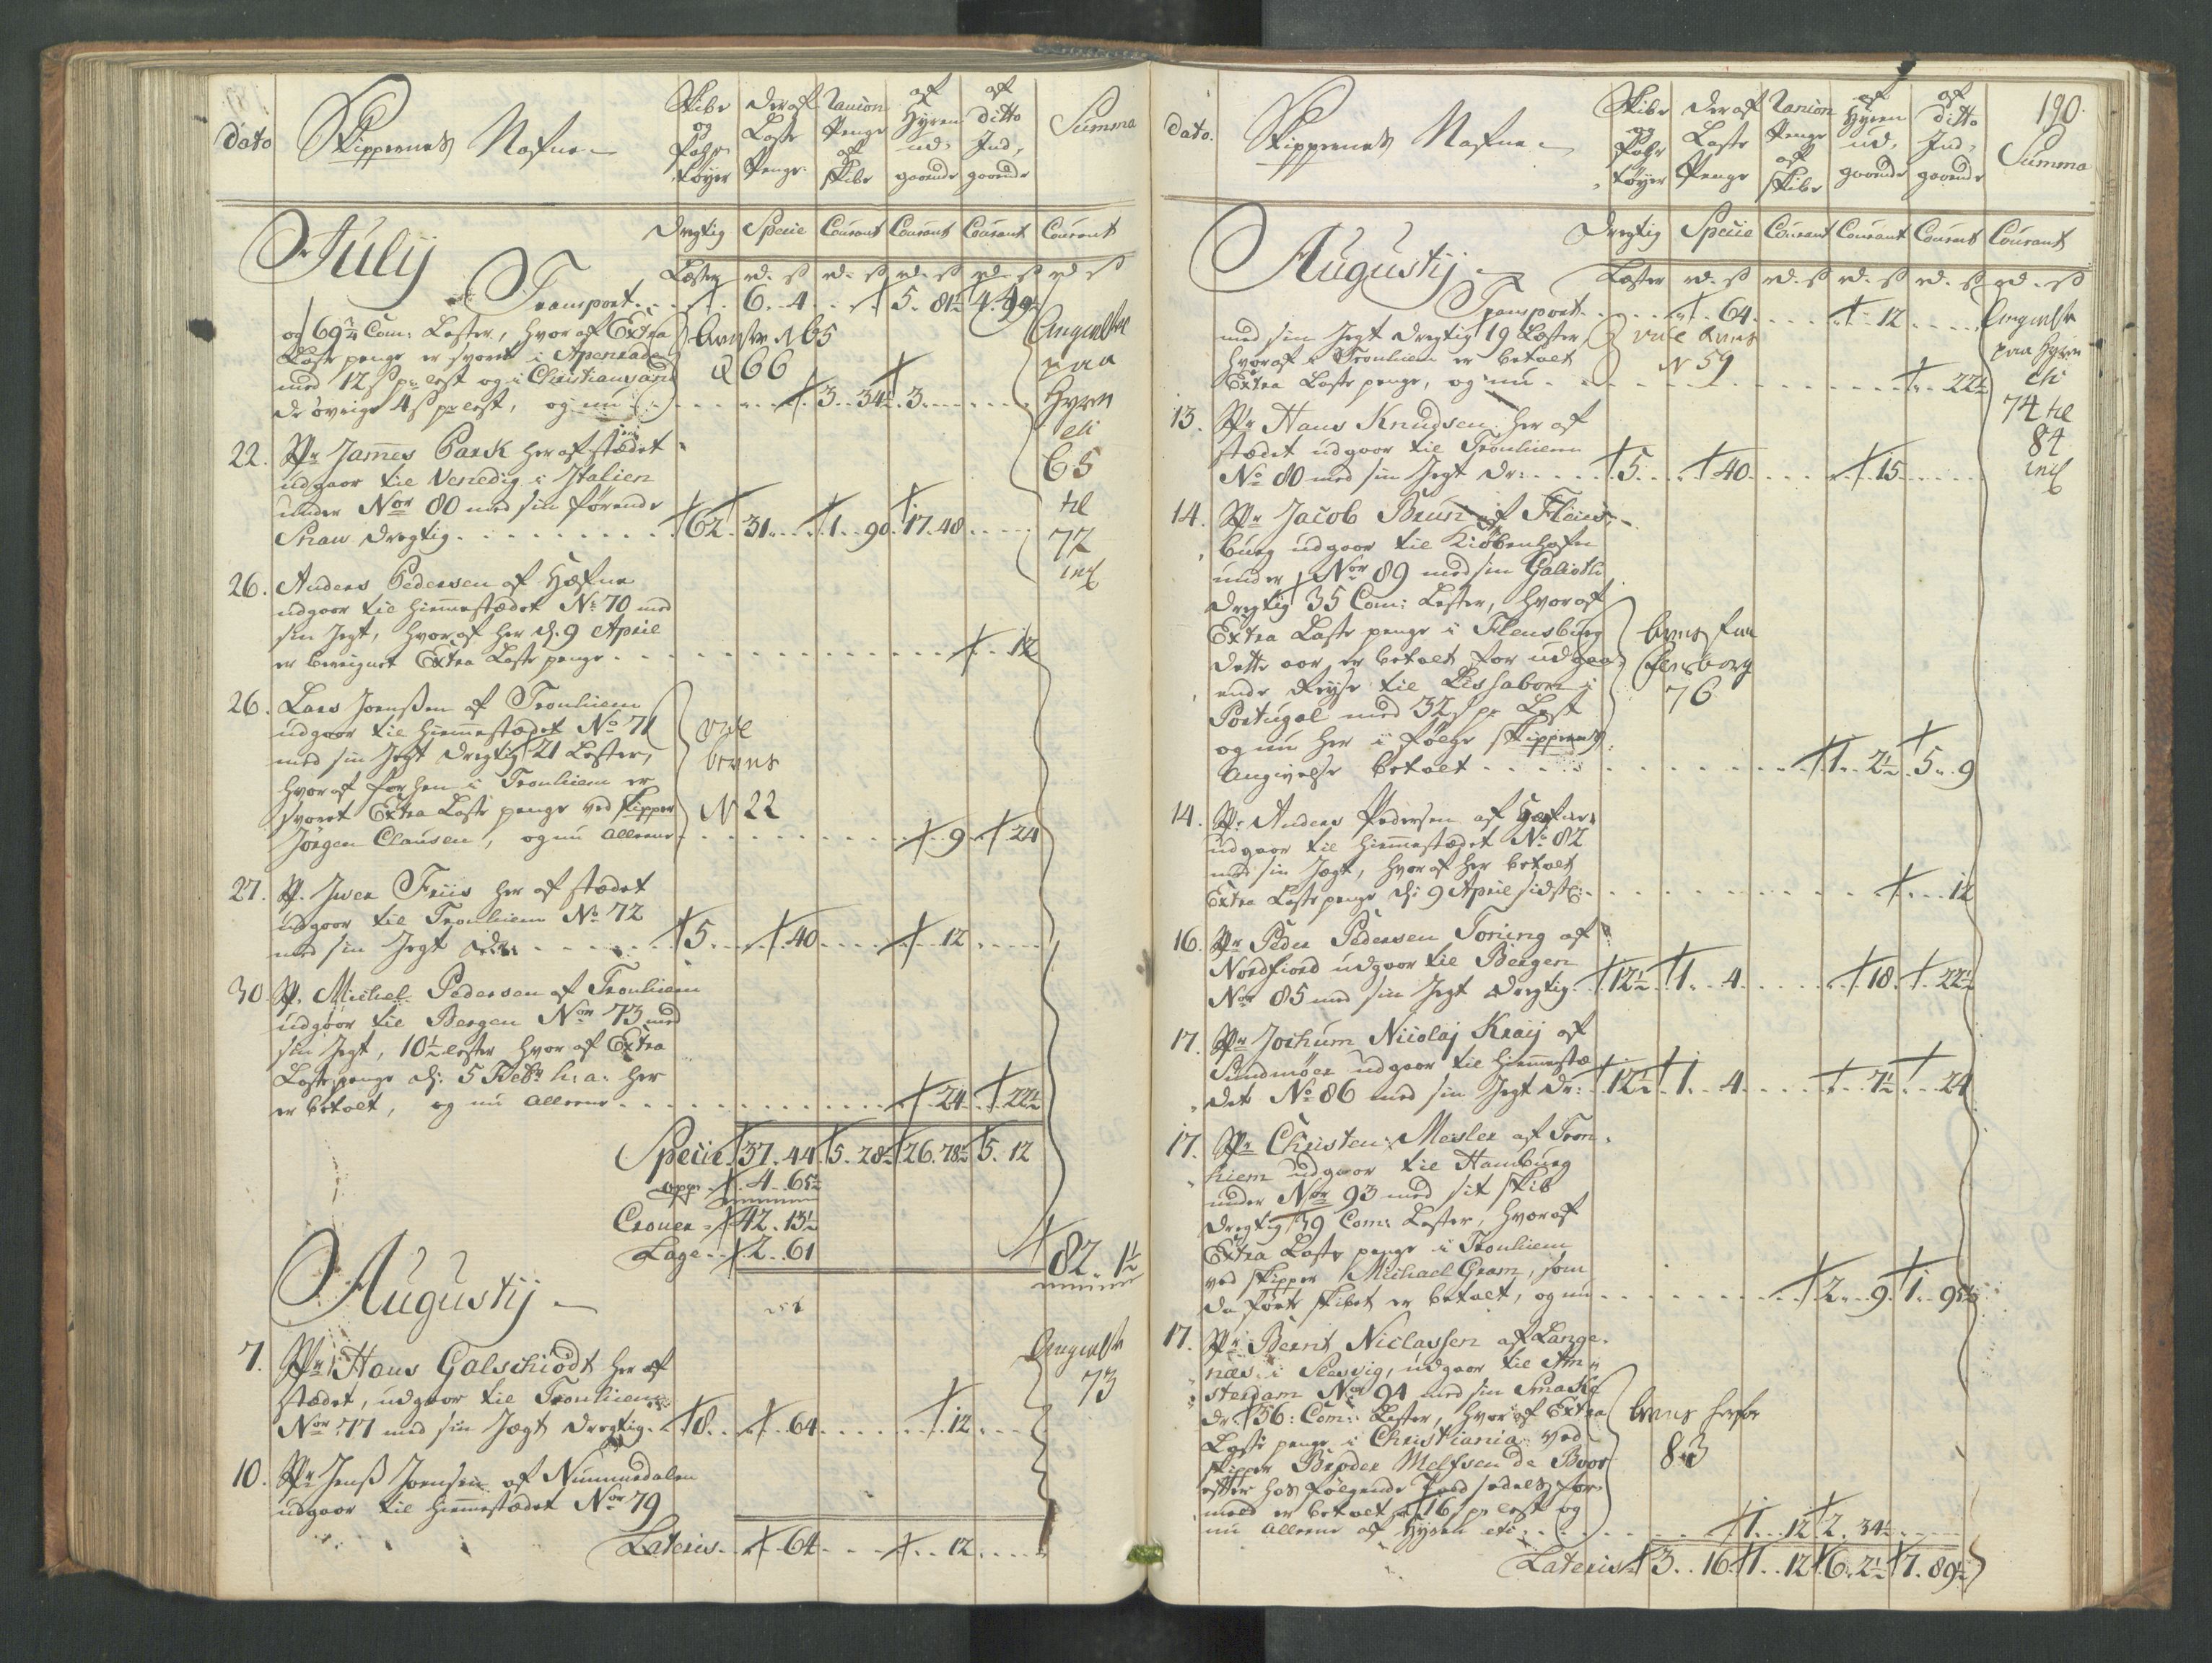 Dato
Skippernes Nafne
Skibe og Far- tøyer
Deraf Laste Penge
Rançion Penge af Skibe
af Hyren ud- gaaende
af ditto Ind- gaaende
Summa
Dregtig Specie Courant Courant Courant Courant
July
Læster rd. ß rd. ß rd. ß rd. ß rd ß
Transport 6. 4. 5. 81½
og 69¾ Com: Lester, hvoraf Extra
Laste penge er svaret i Apenrade
med 12 ß pr lest og i Christiansand
de øvrige 4 ß pr lest, og nu 3. 34½ 3.
Beviis N 65
& 66
Angivelse
paa
Hyren
65
til
72
incl
22. Sr James Park her af stædet
udgaar til Venedig i Italien
under Nor 80 med sin førende
Snau dregtig 62. 31. 1. 90. 17. 48
26. Anders Pedersen af Hæfne
udgaar til hiemmestædet No 70 med
sin Jegt, hvoraf her d. 9 April
er beregnet Extra Laste penge 12
26. Lars Joenssen af Tronhiem
udgaar til hiemmestædet No 71
med sin Jegt dregtig 21 Lester,
hvoraf forhen i Tronhiem er
svaret Extra Laste penge ved skipper
Jørgen Clausen, og nu alleene 9 24
vide
beviis
N 22
27. Sr. Iwer Friis her af stædet
udgaar til Tronhiem No 72
med sin Jegt Dr: 5. 40. 12
30. Sr. Michel Pedersen af Tronhiem
udgaar til Bergen Nor 73 med
sin Jegt, 10½ lester hvoraf Extra
Laste penge d: 5 Febr h: a: her
er betalt, og nu alleene 24. 22½
Specie 37. 44. 5. 28½ 26. 78½ 5. 12
opp. 4. 65½
Croner 42. 13½
Lage 2. 61
82. 1½
Augustij
7. Sr Hans Galschiødt her af
stædet, udgaar til Tronhiem
Nor 77 med sin Jægt Drægtig 8. 64 12
Angivelse
73
10. Sr Jenß Joensen af Nummedalen
udgaar til hiemmestædet Nor 79
Lateris 64 12
190.
Dato.
Skippernes Nafne
Skibe og Far- tøyer
Deraf Laste Penge
Rançion Penge af Skibe
af Hyren ud- gaaende
af ditto Ind- gaaende
Summa
Dregtig Specie Courant Courant Courant Courant
Augustij
Læster rd. ß rd. ß rd. ß rd. ß rd. ß
Transport 64. 12
med sin Jegt drægtig 19 Læster,
hvoraf i Tronhiem er betalt
Extra Laste penge, og nu 22½
vide beviis
N 59
Angivelse
paa Hyren
74 til
84
incl
13. Sr Hans Knudsen her af
stædet udgaar til Tronhiem
No 80 med sin Jegt Dr: 5. 40. 15
14. Sr Jacob Bruun af Flens-
burg udgaar til Kiøbenhafn
under Nor 89 med sin Galioth
Dregtig 35 Com: Læster, hvoraf
Extra Laste penge i Flensburg
dette aar er betalt for udgaa-
ende Reyse til Lissabon i
Portugal med 32 ß pr Lest
og nu her i følge skippern's
Angivelse betalt 1. 2½ 5. 9
beviis fra
Flensborg
76
14. Sr. Anders Pedersen af Hæfne
udgaar til hiemmestædet No 82
med sin Jægt, hvoraf her betalt
Extra Laste penge d: 9 April sidstl: 12
16. Sr Peder Pedersen Toning af
Nordfiord udgaar til Bergen
Nor 85 med sin Jegt Drægtig 12½ 1. 4. 18. 22½
17. Sr Jochum Nicolaj Kraij af
Sundmøer udgaar til hiemmestæ-
det No 86 med sin Jegt Dr: 12½ 1. 4. 7½ 24
17. Sr Christen Mesler af Tron-
hiem udgaar til Hamburg
under Nor 93 med sit skib
drægtig 39 Com: Læster, hvoraf
Extra Laste penge i Tronhiem
ved skipper Michael Gram, som
da førte skibet er betalt, og nu 2. 9. 1.
17. Sr Bernt Niclassen af Lange-
næs i Slesvig, udgaar til Am-
sterdam Nor 94 med sin Smakke
dr. 56: Com: Læster, hvoraf Extra
Laste penge i Christiania ved
skipper Broder Melfsen de Boor
efter hos følgende Pass sedels for-
meld er betalt 16 ß pr lest og
nu alleene af Hyren etc: 1. 12 2. 34½
beviis herfor
83
Lateris 3. 16 1. 12 6. 2½ 7. 89½